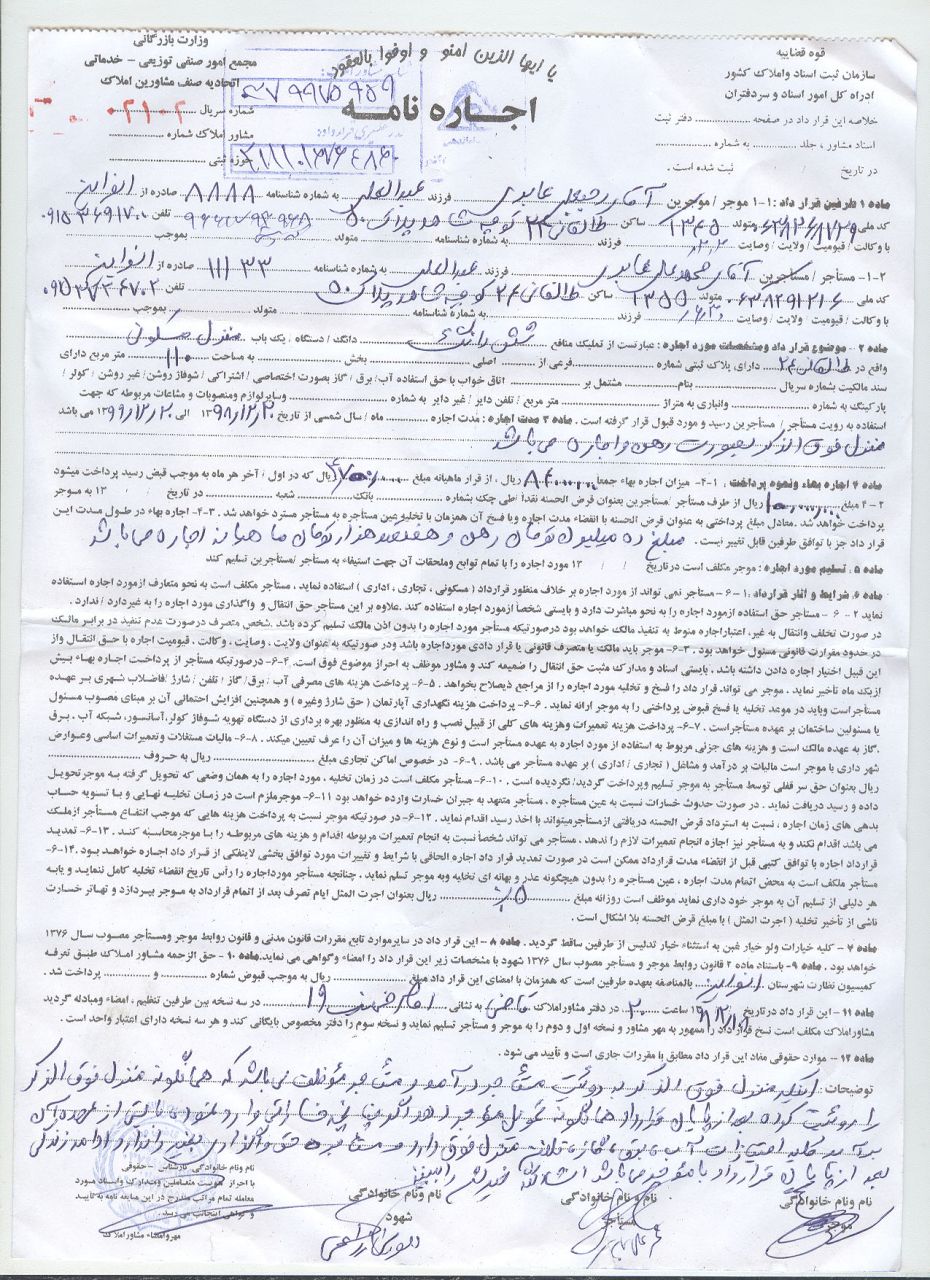 یا ایها الذین امنو و اوفوا بالعقود
قوه قضاییه
سازمان ثبت اسناد واملاک کشور
ادراه کل امور اسناد و سردفتران
خلاصه این قرار داد در صفحه ........ دفتر ثبت
اسناد مشاور ، جلد ........ به شماره ........
در تاریخ / / ثبت شده است .
اجــاره نامــه
وزارت بازرگانی
مجمع امور صنفی توزیعی - خدماتی
اتحادیه صنف مشاورین املاک
شماره سریال ........ ۰۲۱۰۲
مشاور املاک شماره ........
حوزه ثبتی ........
ماده ۱ طرفین قرار داد: ۱-۱ موجر / موجرین آقای رجبعلی عابدی فرزند عبدالعلی به شماره شناسنامه ۸۸۸۸ صادره از
کد ملی متولد ۱۳۴۵ ساکن طالقانی ۲۴ کوچه شاهد پلاک ۵۰ تلفن
با وکالت / قیومیت / ولایت / وصایت فرزند به شماره شناسنامه متولد بموجب
۱-۲- مستأجر / مستأجرین آقای محمدعلی عابدی فرزند عبدالعلی به شماره شناسنامه ۱۱/۳۳ صادره از
کد ملی ۰۶۳۸۲۹۱۲۱۶ متولد ۱۳۵۵ ساکن طالقانی ۲۴ کوچه شاهد پلاک ۵۰ تلفن
با وکالت / قیومیت / ولایت / وصایت فرزند به شماره شناسنامه متولد بموجب
ماده ۲ - موضوع قرار داد ومشخصات مورد اجاره : عبارتست از تملیک منافع شش دانگ دانگ / دستگاه . یک باب منزل مسکونی
واقع در طالقانی ۲۴ دارای پلاک ثبتی شماره فرعی از اصلی بخش به مساحت ۱۱۰ متر مربع دارای
سند مالکیت بشماره سریال بنام مشتمل بر اتاق خواب با حق استفاده آب/ برق / گاز بصورت اختصاصی / اشتراکی / شوفاژ روشن/ غیر روشن / کولر /
پارکینگ به شماره وانباری به متراژ متر مربع / تلفن دایر / غیر دایر به شماره وسایرلوازم ومنصوبات و مشاعات مربوطه که جهت
استفاده به رویت مستأجر / مستأجرین رسید و مورد قبول قرار گرفته است . ماده ۳ مدت اجاره : مدت اجاره ماه / سال شمسی از تاریخ ۱۳۹۸/۱۲/۲۰ الی ۱۳۹۹/۱۲/۲۰ می باشد
منزل فوق الذکر بصورت رهن و اجاره می باشد
ماده ۴ اجاره بهاء ونحوه پرداخت : ۱-۴- میزان اجاره بهاء جمعاً ریال ، از قرار ماهیانه مبلغ ریال که در اول / آخر هر ماه به موجب قبض رسید پرداخت میشود
۲-۴ مبلغ ریال از طرف مستأجر / مستأجرین بعنوان قرض الحسنه نقداً /طی چک بشماره بانک شعبه در تاریخ / / ۱۳ به موجر
پرداخت خواهد شد . معادل مبلغ پرداختی به عنوان قرض الحسنه با انقضاء مدت اجاره ویا فسخ آن همزمان با تخلیه عین مستأجره به مستأجر مسترد خواهد شد . ۳-۴- اجاره بهاء در طـول مـدت ایـن
قرار داد جز با توافق طرفین قابل تغییر نیست . مبلغ ده میلیون تومان رهن و هفتصد هزار تومان ماهیانه اجاره می باشد
ماده ۵ . تسلیم مورد اجاره : موجر مکلف است در تاریخ / / ۱۳ مورد اجاره را با تمام توابع وملحقات آن جهت استیفاء به مستأجر /مستأجرین تسلیم کند
ماده ۶. شرایط و آثار قرارداد : ۱-۶- مستأجر نمی تواند از مورد اجاره بر خلاف منظور قرارداد ( مسکونی ، تجاری ، اداری ) استفاده نماید . مستأجر مکلف است به نحو متعارف ازمورد اجاره استفاده
نماید ۲-۶- مستأجر حق استفاده ازمورد اجاره را به نحو مباشرت دارد و بایستی شخصاً ازمورد اجاره استفاده کند .علاوه بر این مستأجر حق انتقال و واگذاری مورد اجاره را به غیردارد / ندارد .
در صورت تخلف وانتقال به غیر، اعتباراجاره منوط به تنفیذ مالک خواهد بود درصورتیکه مستأجر مورد اجاره را بدون اذن مالک تسلیم کرده باشد .شخص متصرف درصورت عدم تنفیذ در برابر مالـک
در حدود مقرارت قانونی مسئول خواهد بود . ۳-۶- موجر باید مالک یا متصرف قانونی یا قرار دادی مورداجاره باشد ودر صورتیکه به عنوان ولایت ، وصایت ، وکالت ، قیومیت اجاره با حـق انتقـال واز
این قبیل اختیار اجاره دادن داشته باشد . بایستی اسناد و مدارک مثبت حق انتقال را ضمیمه کند و مشاور موظف به احراز موضوع فوق است. ۴-۶- درصورتیکه مستأجر از پرداخـت اجـاره بهـاء بـیش
ازیک ماه تأخیر نماید . موجر می تواند قرار داد را فسخ و تخلیه مورد اجاره را از مراجع ذیصلاح بخواهد . ۵-۶- پرداخت هزینه های مصرفی آب / برق/ گاز / تلفن / شارژ /فاضـلاب شهـری بـر عهـده
مستأجراست وباید در موعد تخلیه یا فسخ قبوض پرداختی را به موجر ارائه نماید . ۶-۶- پرداخت هزینه نگهداری آپارتمان ( حق شارژ وغیره ) و همچنین افزایش احتمالی آن بر مبنای مصـوب مسـئول
یا مسئولین ساختمان بر عهده مستأجراست . ۷-۶- پرداخت هزینه تعمیرات وهزینه های کلی از قبیل نصب و راه اندازی به منظور بهره برداری از دستگاه تهویه شـوفاژ کولر.آسانسور، شبکه آب . بـرق
.گاز به عهده مالک است و هزینه های جزئی مربوط به استفاده از مورد اجاره به عهده مستأجر است و نوع هزینه ها و میزان آن را عرف تعیین میکند . ۸-۶- مالیات مستغلات و تعمیرات اساسی وعـوارض
شهر داری با موجر است مالیات بر درآمد و مشاغل ( تجاری / اداری ) بر عهده مستأجر می باشد . ۹-۶- در خصوص اماکن تجاری مبلغ ریال به حـروف
ریال بعنوان حق سر قفلی توسط مستأجر به موجر تسلیم وپرداخت گردید/ نگردیده است . ۱۰-۶- مستأجر مکلف است در زمان تخلیه ، مورد اجاره را به همان وضعی که تحویل گرفته بـه موجرتحویـل
داده و رسید دریافت نماید . در صورت حدوث خسارات نسبت به عین مستأجره ، مستأجر متعهد به جبران خسارت وارده خواهد بود ۱۱-۶-موجرملزم است در زمـان تخلیـه نهـایی و بـا تسـویه حسـاب
بدهی های زمان اجاره ، نسبت به استرداد قرض الحسنه دریافتی ازمستأجرمیتواند با اخذ رسید اقدام نماید . ۱۲-۶- در صورتیکه موجر نسبت به پرداخت هزینه هایی که موجب انتفـاع مسـتأجر ازملـک
می باشد اقدام نکند و به مستأجر نیز اجازه انجام تعمیرات لازم را ندهد . مستأجر می تواند شخصاً نسبت به انجام تعمیرات مربوطه اقدام و هزینه های مربوطـه را بـا موجرمحاسبه کنـد . ۱۳-۶- تمدیـد
قرارداد اجاره با توافق کتبی قبل از انقضاء مدت قرارداد ممکن است در صورت تمدید قرار داد اجاره الحاقی با شرایط و تغییرات مورد توافق بخشی لاینفکی از قـرار داد اجـاره خواهـد بـود .۱۴-۶-
مستأجر مکلف است به محض اتمام مدت اجاره ، عین مستأجره را بدون هیچگونه عذر و بهانه ای تخلیه وبه موجر تسلم نماید . چنانچه مستأجر مورداجاره را رأس تاریخ انقضاء تخلیه کامل ننمایـد و یابـه
هر دلیلی از تسلیم آن به موجر خود داری نماید موظف است روزانه مبلغ ریال بعنوان اجرت المثل ایام تصرف بعد از اتمام قرارداد به موجـر بپـردازد و تهـاتر خسـارت
ناشی از تأخیر تخلیه ( اجرت المثل ) با مبلغ قرض الحسنه بلا اشکال است .
ماده ۷ - کلیه خیارات ولو خیار غبن به استثناء خیار تدلیس از طرفین ساقط گردید . ماده ۸ - این قرار داد در سایرموارد تابع مقررات قانون مدنی و قانون روابط موجر ومستأجر مصوب سـال ۱۳۷۶
خواهد بود . ماده ۹- باستناد ماده ۲ قانون روابط موجر و مستأجر مصوب سال ۱۳۷۶ شهود با مشخصات زیر این قرار داد را امضاء وگواهی می نماید.ماده ۱۰ - حق الزحمه مشاور املاک طبـق تعرفـه
کمیسیون نظارت شهرستان بالمناصفه بعهده طرفین است که همزمان با امضای این قرار داد مبلغ ریال به موجب قبوض شماره و پرداخت شد .
ماده ۱۱ - این قرار داد در تاریخ ساعت ۲۰ در دفتر مشاوراملاک به نشانی امام خمینی ۱۹ در سه نسخه بین طرفین تنظیم ، امضاء ومبادله گردید
مشاوراملاک مکلف است نسخ قرار داد را ممهور به مهر مشاور و نسخه اول و دوم را به موجر و مستأجر تسلیم نماید و نسخه سوم را دفتر مخصوص بایگانی کند و هر سه نسخه دارای اعتبار واحد است .
ماده ۱۲ - موارد حقوقی مفاد این قرار داد مطابق با مقررات جاری است و تأیید می شود .
توضیحات : اینکه منزل فوق الذکر به روئیت مستاجر درآمد و مستاجر موظف می باشد که همانگونه منزل فوق الذکر
را روئیت کرده بعد از پایان قرارداد همانگونه تحویل موجر دهد اگر چنانچه خسارتی وارد نمود می بایستی از عهده آن
برآید کلیه امتیازات آب، برق، گاز، تلفن منزل فوق دارد و مستاجر حق واگذاری بغیر را ندارد
بعد از پایان قرارداد با موجر می باشد انشاءالله خیرش را ببینید
نام ونام خانوادگی
موجر
نام ونام خانوادگی
مستأجر
نام ونام خانوادگی
شهود
نام ونام خانوادگی کارشناس -حقوقی
با احراز هویت متعاملین ومدارک واسناد مـورد
معامله تمام مراتب مندرج در این مبایعه نامه به تأییـد
و گواهی اینجانب می رسد .
مهروامضاء مشاوراملاک